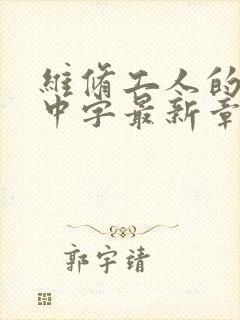 維脩工人的
中字最新章
郭宇靖